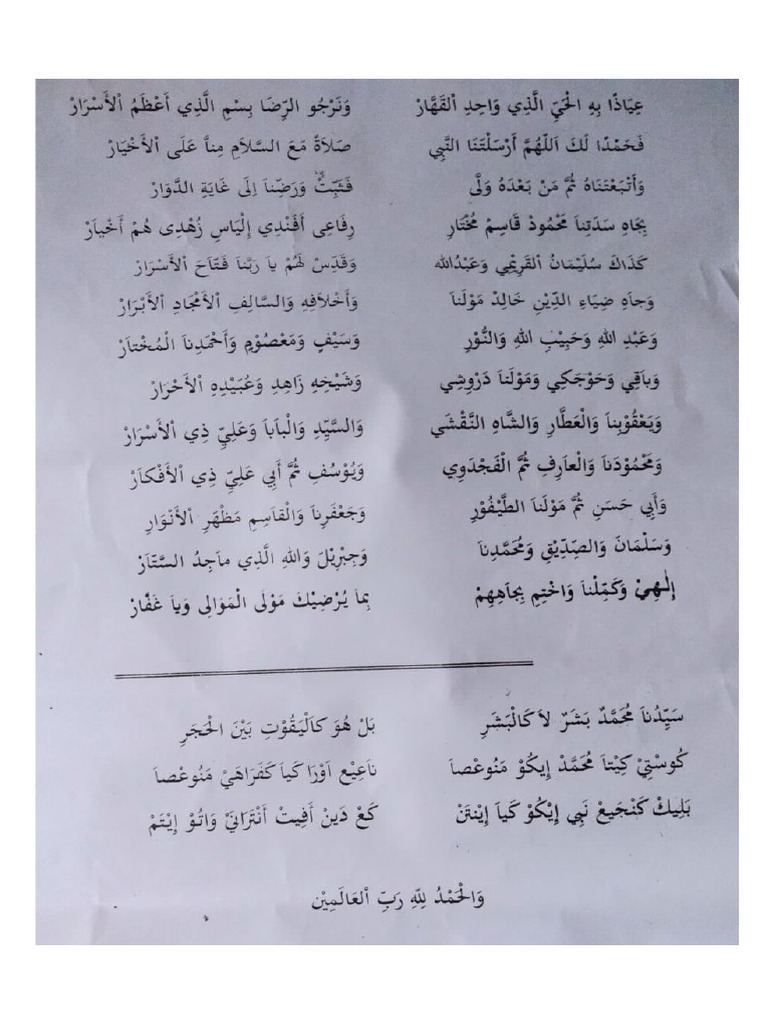 عِيَاذًا بِهِ الْحَيِّ الَّذِي وَاحِدِ اْلقَهَّارْ وَنَرْجُو الرِّضَا بِسْمِ الَّذِي أَعْظَمُ اْلأَسْرَارْ
فَحَمْدًا لَكَ اَللّٰهُمَّ أَرْسَلْتَنَا النَّبِي صَلاَةً مَعَ السَّلاَمِ مِناَّ عَلَى اْلأَخْيَارْ
وَأَتْبَعْتَنَاهُ ثُمَّ مَنْ بَعْدَهُ وَلَّى فَثَبِّتْ وَرَضِّناَ اِلَى غَايَةِ الدَّوَارْ
بِجَاهِ سَدَتِناَ مَحْمُودْ قَاسِمْ مُخْتَارِ رِفَاعِى أَفَنْدِي إِلْيَاسِ زُهْدِى هُمْ أَخْياَرْ
كَذَاكَ سُلَيْمَانُ اْلقَرِيْمِي وَعَبْدُالله وَقَدِّسْ لَهُمْ ياَ رَبَّناَ فَتَّاحَ اْلأَسْرَارْ
وَجاَهِ ضِيَاءِ الدِّيْنِ خَالِدْ مَوْلَناَ وَأَخْلاَفِهِ وَالسَّالِفِ اْلأَمْجَادِ اْلأَبْرَارْ
وَعَبْدِ اللهِ وَحَبِيْبِ اللهِ وَالنُّوْرِ وَسَيْفٍ وَمَعْصُوْمٍ وَأَحْمَدِناَ الْمُخْتاَرْ
وَباَقِي وَحَوْجَكِي وَمَوْلَناَ دَرْوِشِي وَشَيْخِهِ زَاهِدِ وَعُبَيْدِهِ اْلأَحْرَارْ
وَيَعْقُوْبِناَ وَالْعَطَّارِ وَالشَّاهِ النَّقْشَي وَالسَّيِّدِ وَالْباَباَ وَعَلِيِّ ذِي اْلأَسْرَارْ
وَمَحْمُوْدَناَ وَالْعاَرِفِ ثُمَّ الْفَجْدَوِي وَيُوْسُفِ ثُمَّ أَبِي عَلِيِّ ذِي اْلأَفْكَارْ
وَأَبِي حَسَنِ ثُمَّ مَوْلَناَ الطَّيْفُوْرِ وَجَعْفَرِناَ وَالْقاَسِمِ مَظْهَرِ اْلأَنْوَارِ
وَسَلْمَانَ وَالصِّدِّيْقِ وَمُحَمَّدِناَ وَجِبْرِيْلَ وَاللهِ الَّذِي ماَجِدُ السَّتَّارْ
إِلٰهِيْ وَكَمِّلْناَ وَاخْتِمِ بِجاَهِهِمْ بِماَ يُرْضِيْكَ مَوْلَى الْمَوَالِى وَياَ غَفَّارْ
سَيِّدُناَ مُحَمَّدٌ بَشَرٌ لاَ كَالْبَشَرِ بَلْ هُوَ كاَلْيَقُوْتِ بَيْنَ الْحَجَرِ
كُوسْتِيْ كِيْتاَ مُحَمَّدْ إِيكُوْ مَنُوعْصاَ ناَعِيْع اَوْرَا كَياَ كَفَرَاهَيْ مَنُوعْصاَ
بَلِيكْ كَنْجَيعْ نَبِي إِيْكُوْ كَياَ إِيْنتَنْ كَعْ دَيْنْ أَفِيتْ أَنْتَرَانَيْ وَاتُوْ إِيْتَمْ
وَالْحَمْدُ لِلّٰهِ رَبِّ اْلعَالَمِيْن